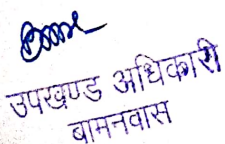 उपखण्ड अधिकारी
बामनवास